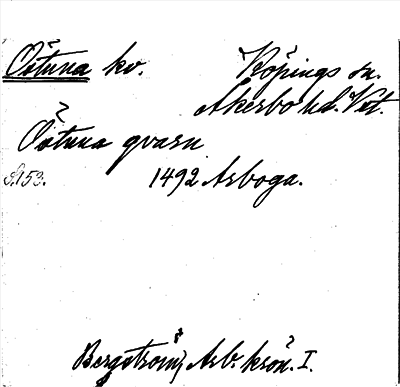 Östuna kv. Köpings sn.
Åkerbo hd. Vst.
Östuna qvarn
S.153. 1492 Arboga.
Bergström, Arb. krön. I.